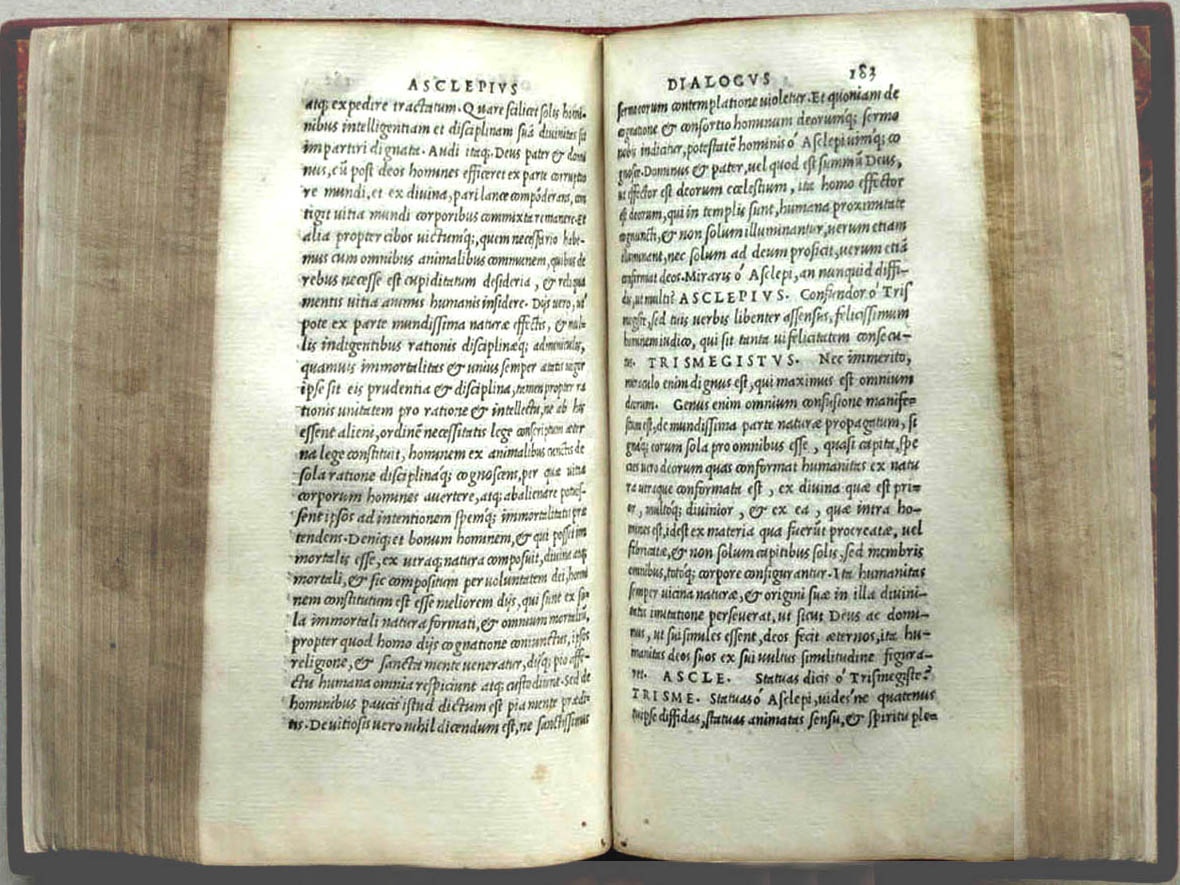 ASCLEPIVS
atq; expedire tractatum. Quare scilicet solis homi-
nibus intelligentiam et disciplinam suã divinitas sit
impartiri dignata. Audi itaq; Deus pater & domi
nus, cũ post deos homines efficeret ex parte corruptio
re mundi, et ex divina, pari lance compõderans, con
tigit uitia mundi corporibus commixta remanere. et
alia propter cibos uictumq;, quem necessario habe-
mus cum omnibus animalibus communem, quibus de
rebus necesse est cupiditatum desideria, & reliqua
mentis uitia animis humanis insidere. Dijs uero, ut
pote ex parte mundissima naturæ effectis, & nul-
lis indigentibus rationis disciplinæq; adminiculis,
quamuis immortalitas & unius semper ætatis uigor
ipse sit eis prudentia & disciplina, tamen propter ra
tionis unitatem pro ratione & intellectu, ne ab his
essent alieni, ordinẽ necessitatis lege conscriptum æter
na lege constituit, hominem ex animalibus cunctis de
sola ratione disciplinaq; cognoscens, per quæ uitia
corporum homines auertere, atq; abalienare potuis-
sent ipsos ad intentionem spemq; immortalitatis præ
tendens. Deniq; et bonum hominem, & qui posset im
mortalis esse, ex utraq; natura composuit, diuina atq;
mortali, & sic compositum per uoluntatem dei, homi
nem constitutum est esse meliorem dijs, qui sunt ex so-
la immortali natura formati, & omnium mortaliũ,
propter quod homo dijs cognatione coniunctus, ipsos
religione, & sancta mente ueneratur, dijq; pio affe-
ctu humana omnia respiciunt atq; custodiunt. Sed de
hominibus paucis istud dictum est pia mente prædi-
tis. De uitiosis uero nihil dicendum est, ne sanctissimus
DIALOGVS 183
sermo eorum contemplatione uioletur. Et quoniam de
cognatione & consortio hominum deorumq; sermo
nobis indicitur, potestatẽ hominis ô Asclepi uimq; co
gnosce. Dominus & pater, uel quod est summũ Deus,
ut effector est deorum cœlestium, ita homo effector
est deorum, qui in templis sunt, humana proximitate
coniuncti, & non solum illuminantur, uerum etiam
illuminant, nec solum ad deum proficit, uerum etiã
confirmat deos. Miraris ô Asclepi, an nunquid diffi-
dis, ut multi? ASCLEPIVS. Confundor ô Tris
megiste, sed tuis uerbis libenter assensus, felicissimum
hominem iudico, qui sit tanta ui felicitatem consecu-
tus. TRISMEGISTVS. Nec immerito,
miraculo enim dignus est, qui maximus est omnium
deorum. Genus enim omnium confusione manife-
stum est, de mundissima parte naturæ propagatum, si
gnaq; eorum sola pro omnibus esse, quasi capita, spe
cies uero deorum quas conformat humanitas ex natu
ra utraque conformata est, ex divina quæ est pri-
or, multoq; divinior, & ex ea, quæ intra ho-
mines est, idest ex materia qua fuerũt procreatæ, uel
fabricatæ, & non solum capitibus solis, sed membris
omnibus, totoq; corpore configurantur. Ita humanitas
semper uicina naturæ, & origini suæ in illa diuini-
tatis imitatione perseuerat, ut sicut Deus ac domi-
nus, ut sui similes essent, deos fecit æternos, ita hu-
manitas deos suos ex sui uultus similitudine figura-
ret. ASCLE. Statuas dicis ô Trismegiste?
TRISME. Statuas ô Asclepi, uides'ne quatenus
tuipse diffidas, statuas animatas sensu, & spiritu ple-